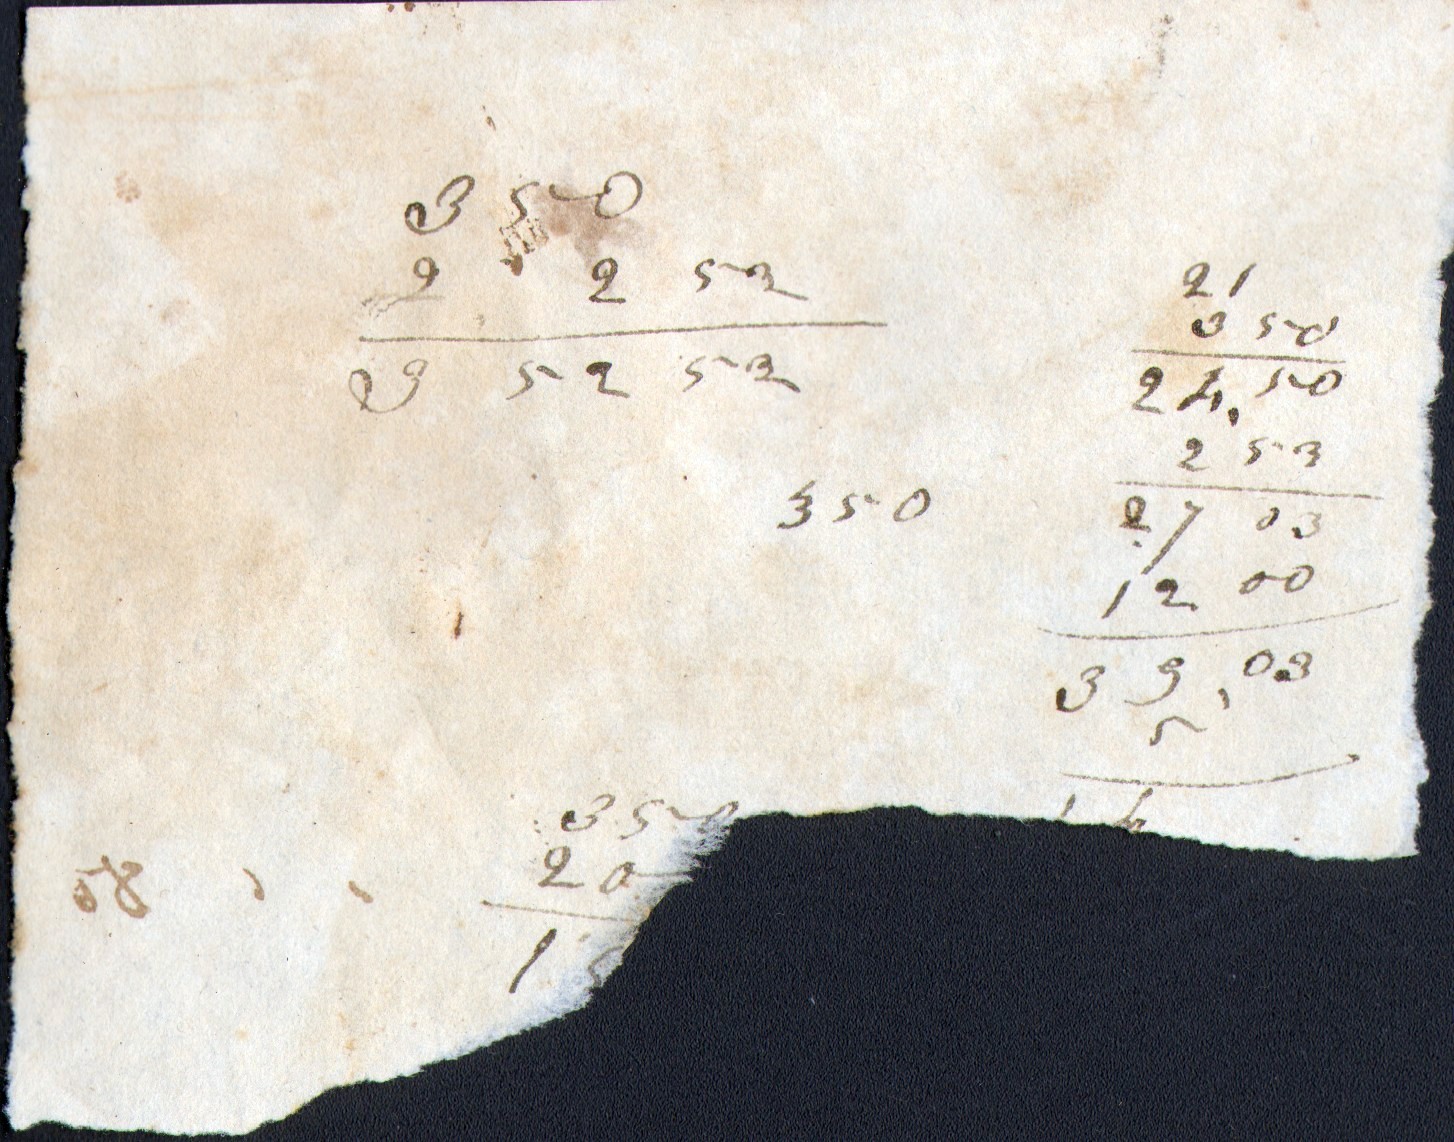 3 50
2 2 53
3 52 53
350
21
3 50
24,50
2 53
27 03
12 00
39,03
5
350
20
1